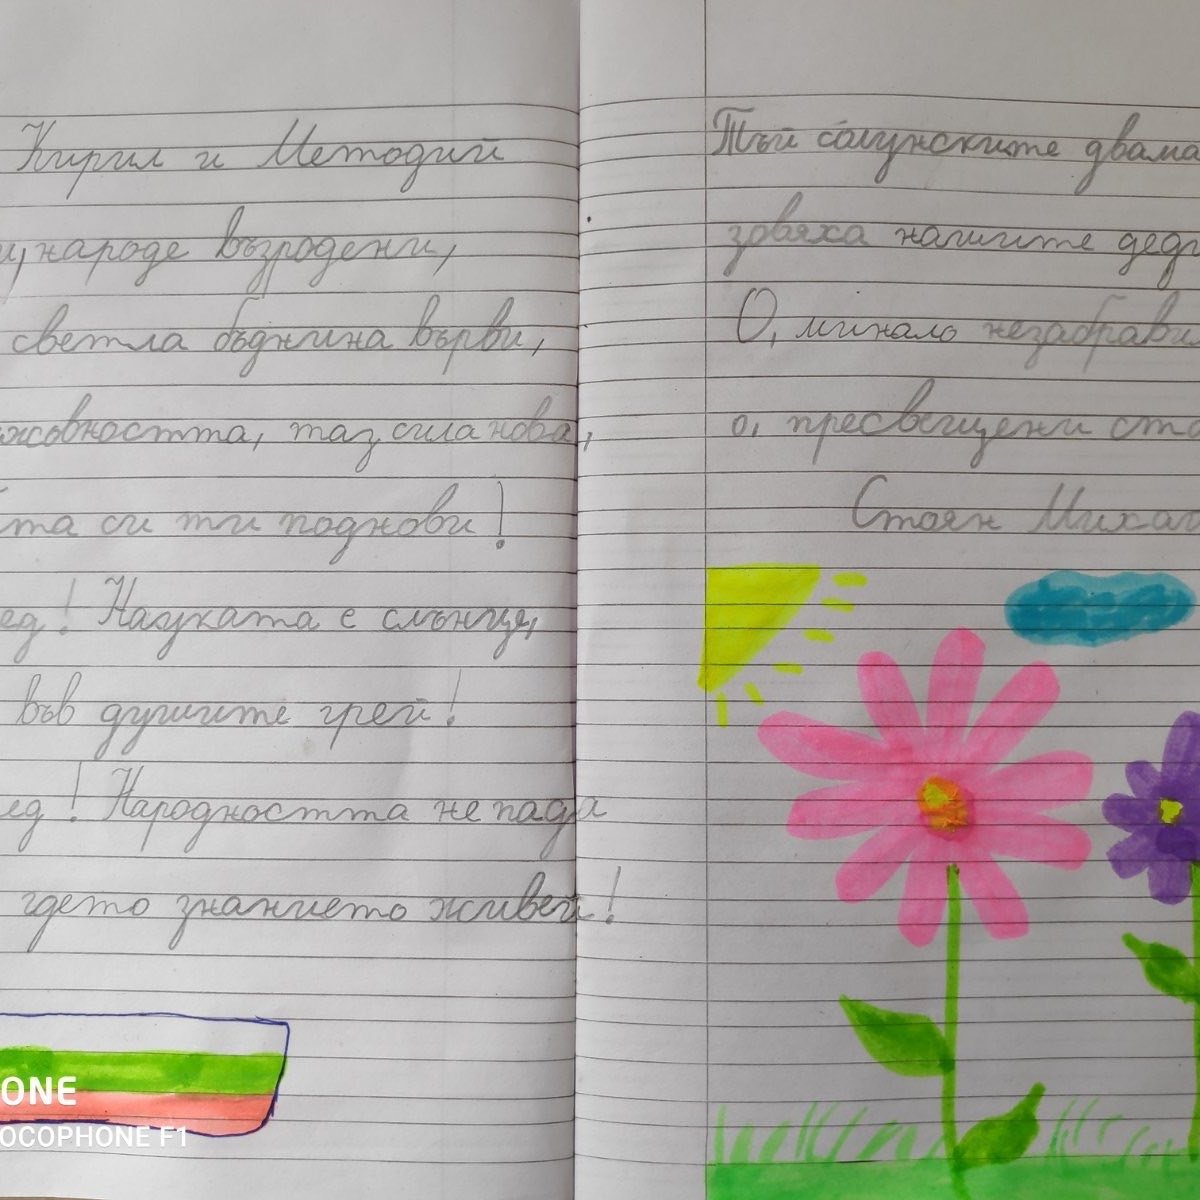 Кирил и Методий
народе възродени,
светла бъднина върви,
жовността, таз сила нова,
та си ти поднови!
ед! Науката е слънце,
във душите грей!
ед! Народността не пада
гдето знанието живей!
ONE
OCOPHONE F1
Тъй солунските двама
зовяха нашите деди
О, минало незабрави
о, пресвещени ста
Стоян Миха